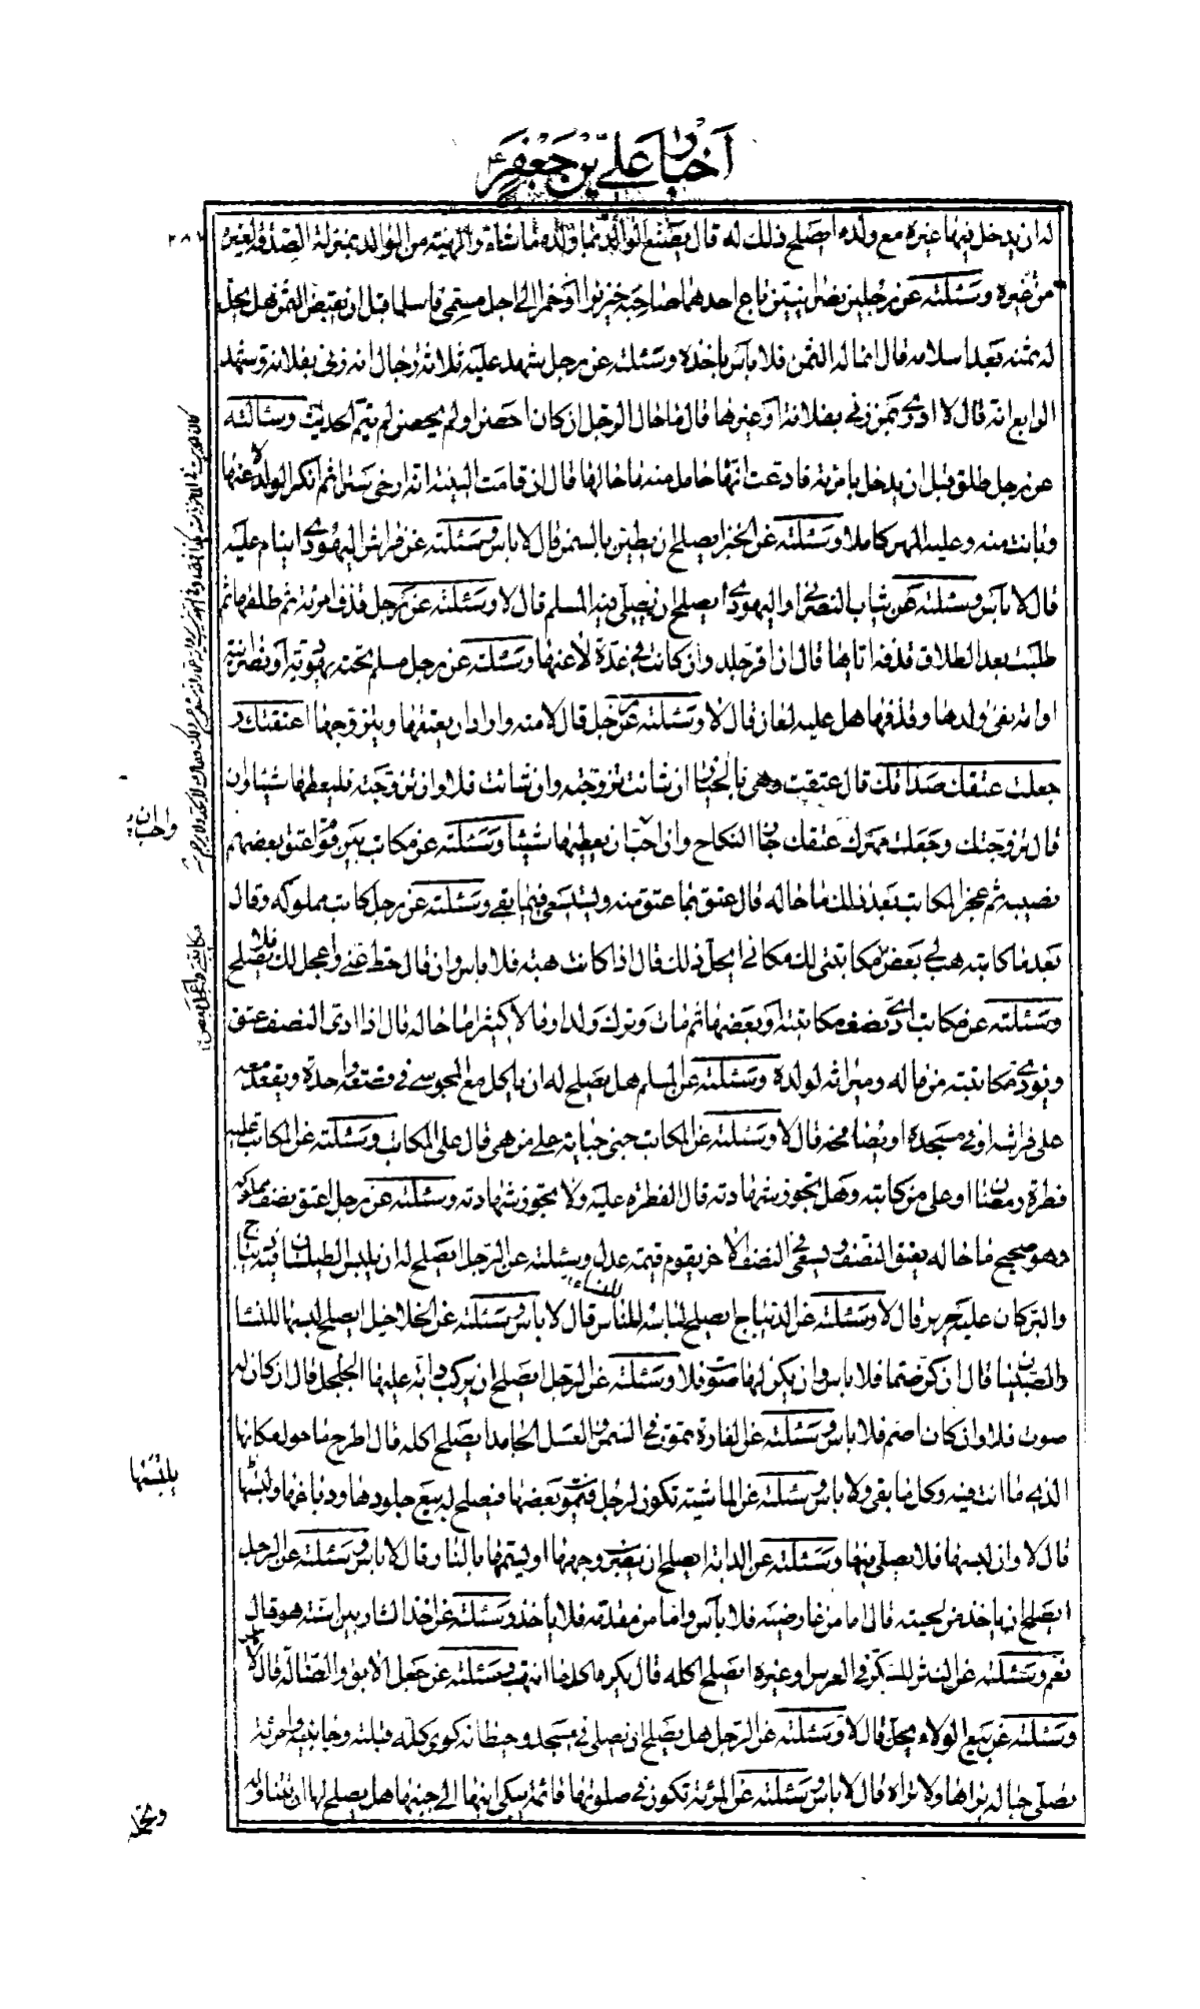 أخبار علي بن جعفر ع
٢٨٧
له ان يدخل فيها غيره مع ولده ايصلح ذلك له قال يصنع الوالد بمال ولده ما شاء والهبة من الوالد بمنزلة الصدقة لغيره
من غيره وسئلته عن رجلين نصرانيين باع احدهما صاحبه خنزيرا او خمرا الى اجل مسمى فاسلما قبل ان يقبض الثمن هل يحل
له ثمنه بعد اسلامه قال انما له الثمن فلا باس ياخذه وسئلته عن رجل شهد عليه ثلاثة رجال انه زنى بفلانة وشهد
الرابع انه قال لا ادري بمن زنى بفلانة او غيرها قال ما حال الرجل ان كان احصن او لم يحصن لم يتم الحديث وسئالته
عن رجل طلق قبل ان يدخل بامرئة فادعت انها حامل منه ما حالها قال ان قامت البينة انه ارخى سترا ثم انكر الولد لا عنها
وبانت منه وعليه المهر كاملا وسئلته عن الخبز ايصلح ان يطين بالسمن قال لا باس وسئلته عن فراش اليهودي اينام عليه
قال لا باس وسئلته عن ثياب النصراني او اليهودي ايصلح ان يصلي فيه المسلم قال لا وسئلته عن رجل قذف امرئة ثم طلقها ثم
طلبت بعد الطلاق قذفه اياها قال ان اقر جلد وان كانت في عدة لاعنها وسئلته عن رجل مسلم تحته يهودية او نصرانية
او امة نفى ولدها وقذفها هل عليه لعان قال لا وسئلته عن رجل قال لامته واراد ان يعتقها ويتزوجها اعتقتك و
جعلت عتقك صداقك قال عتقت وهي بالخيار ان شائت تزوجته وان شائت فلا وان تزوجته فليعطها شيئا وان
قال تزوجتك وجعلت مهرك عتقك جاز النكاح وان احب ان يعطيها شيئا وسئلته عن مكاتب بين قوم اعتق بعضهم
نصيبه ثم عجز المكاتب بعد ذلك ما حاله قال عتق بما عتق منه ويستسعى فيما بقي وسئلته عن رجل كاتب مملوكه وقال
بعد ما كاتبه هب لي بعض مكاتبتي لك مكاني ايحل ذلك قال اذا كانت هبة فلا باس وان قال حط عني واعجل لك فلا يصلح
وسئلته عن مكاتب ادى نصف مكاتبته او بعضها ثم مات وترك ولدا ومالا كثيرا ما حاله قال اذا ادى النصف عتق
ويؤدى مكاتبته من ماله وميراثه لولده وسئلته عن المسلم هل يصلح له ان ياكل مع المجوسي في قصعة واحدة ويقعد معه
على فراشه او في مسجده او يصافحه قال لا وسئلته عن المكاتب جنى جناية على من هي قال على المكاتب وسئلته عن المكاتب عليه
فطرة رمضان او على من كاتبه وهل تجوز شهادته قال الفطرة عليه ولا تجوز شهادته وسئلته عن رجل اعتق نصف مملوكه
وهو صحيح ما حاله قال يعتق النصف ويسعى في النصف الآخر يقوم قيمة عدل وسئلته عن الرجل ايصلح له ان يلبس الطيلسان فيه ديباج
والبركان عليه حرير قال لا وسئلته عن الديباج ايصلح لباسه للناس قال لا باس وسئلته عن الخلاخيل ايصلح لبسها للنساء
للنساء
والصبيان قال ان كن صما فلا باس وان يكن لها صوت فلا وسئلته عن الرجل ايصلح ان يركب دابة عليها الجلجل قال ان كان له
صوت فلا وان كان اصم فلا باس وسئلته عن الفارة تموت في السمن والعسل الجامد ايصلح اكله قال اطرح ما حول مكانها
الذي ماتت فيه وكل ما بقي ولا باس وسئلته عن الماشية تكون لرجل فتموت بعضها فيصلح له بيع جلودها ودباغها ولبسها
قال لا وان لبسها فلا يصلي فيها وسئلته عن الدابة ايصلح ان يضرب وجهها او يسمها بالنار قال لا باس وسئلته عن الرجل
ايصلح ان ياخذ من لحيته قال اما من عارضيه فلا باس واما من مقدمه فلا ياخذ وسئلته عن اخذ الشاربين اسنة هو قال
نعم وسئلته عن النثر للسكر في العرس او غيره ايصلح اكله قال يكره اكل ما انتهب وسئلته عن جعل الآبق والضالة قال لا
وسئلته عن بيع الولاء يحل قال لا وسئلته عن الرجل هل يصلح ان يصلي في مسجد وحيطانه كوى كله قبلته وجانبيه وامرئة
تصلي حياله يراها ولا تراه قال لا باس وسئلته عن المرئة تكون في صلوتها قائمة يبكي ابنها الى جنبها هل يصلح لها ان تتناوله
يلبسها
وتحمله